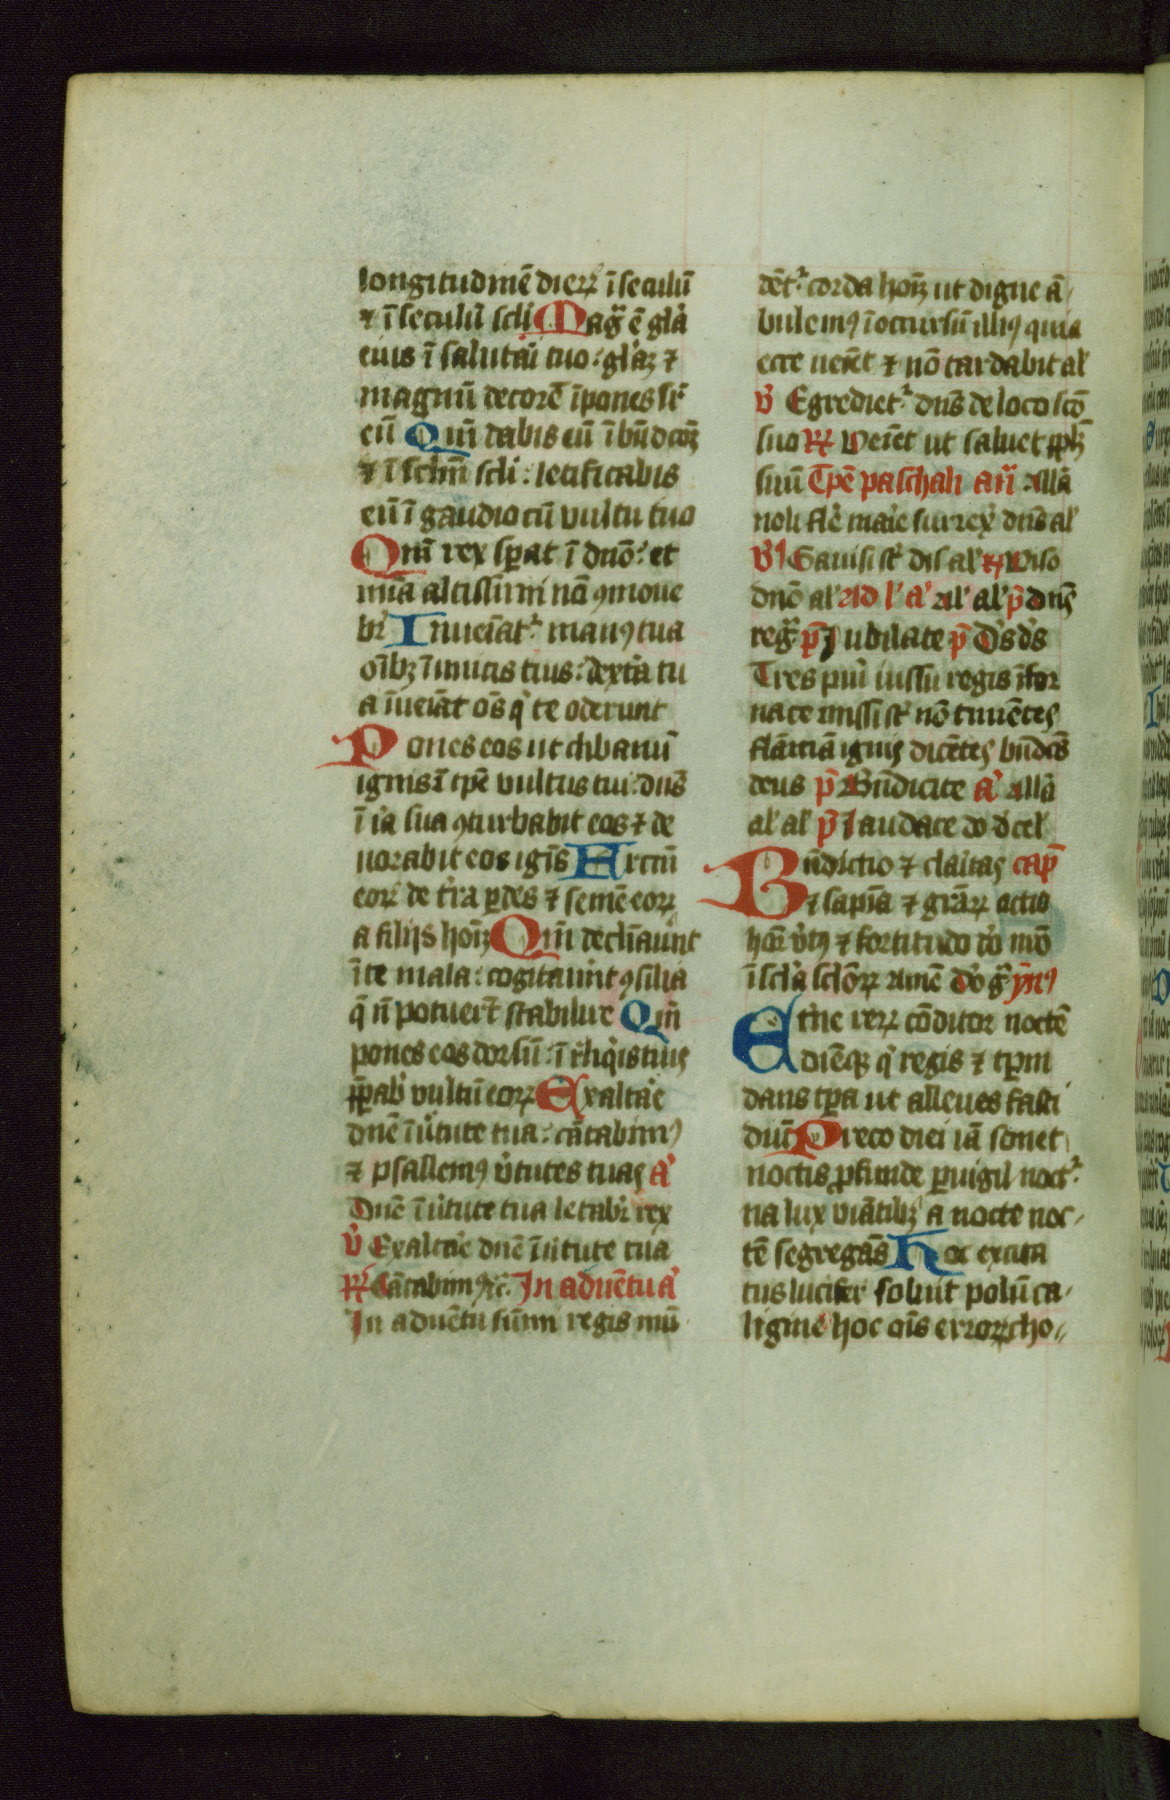 longitudinē dierꝝ ī seculū
⁊ ī seculū scli Mag̃ ē gl̃a
eius ī salutaı̇ tuo: gl̃aꝫ ⁊
magnū decorē īpones sr̃
eū Qm̄ dabis eū ī bn̄dcōꝫ
⁊ ī sclm̄ scli: letificabis
eū ī gaudio cū vultu tuo
Qm̄ rex sꝑat ī dn̄o: et
mı̄a altissimi nō ꝯmoue
br̃ Inueiāt᷒ manꝰ tua
oı̄bꝫ īimicis tuis: dext̾a tu
a īueiāt oēs q̇ te oderunt
Pones eos ut clibanū
ignis ī tp̄e vultus tui: dn̄s
ī ı̇a sua ꝯturbabit eos ⁊ de
uorabit eos ignis Frctū
eorꝝ de t̾ra ꝑdes ⁊ semē eorꝝ
a filijs hoīꝫ Qm̄ declı̄auı̄nt
ī te mala: cogitauı̄nt ꝯsilia
q̄ n̄ potuer̄t stabilire Qm̄
pones eos dorsū: ī rl̄iq̇is tuis
p̄ꝑab̾ vultū eorꝝ Exaltaı̇e
dn̄e ī v̾tute tua: cātabimꝰ
⁊ psallemꝰ v̾tutes tuas a̾
Dn̄e ī v̾tute tua letabr̃ rex
v̾ Exaltaı̇e dn̄e ī v̾tute tua
ꝶ Cātabimꝰ ⁊c̄. In aduētu a̾
In aduētu sūmi regis mū
dēt᷒ corda hoīꝫ ut digne ā
bulemꝰ ī occursū illiꝰ quia
ecce ueı̄et ⁊ nō tardabit al̾
v̾ Egrediet᷒ dn̄s de loco scō
suo ꝶ Veı̄et ut saluet pplꝫ
suū Tp̄e paschali an̄ Allā
noli fle̾ maı̇e surrex̾ dn̄s al̾
v̾ Gauisi st̃ dis al̾ ꝶ Viso
dn̄o al̾ Ad l̾ a̾ Al̾ al̾ p̄ Dn̄s
reg̃ p̄ Jubilate p̄ D̾s d̾s
Tres pūı̇ iussu regis ī for
nace missi st̃ nō timētes
flāmā ignis dicētes bn̄dcs̄
deus p̄ Bn̄dicite a̾ Allā
al̾ al̾ p̄ laudate do d̾ cel
Bn̄dictio ⁊ claı̇tas cap̄
⁊ sapiā ⁊ grāꝝ actio
hor̄ v̾tꝰ ⁊ fortitudo do̾ nr̄o
ī scl̃a sclōꝝ Amē Do̾ g̃ ympnꝰ
Et̾ne rerꝝ cōditor noctē
diēqꝫ q̇ regis ⁊ tꝑm
dans tꝑa ut alleues fasti
diū Preco diei iā sonet
noctis ꝓfunde ꝑuigil noct᷒
na lux viātibꝫ a nocte noc
tē segregās Hoc excita
tus lucifer soluit polū ca
ligine hoc oı̄s errorꝝ cho